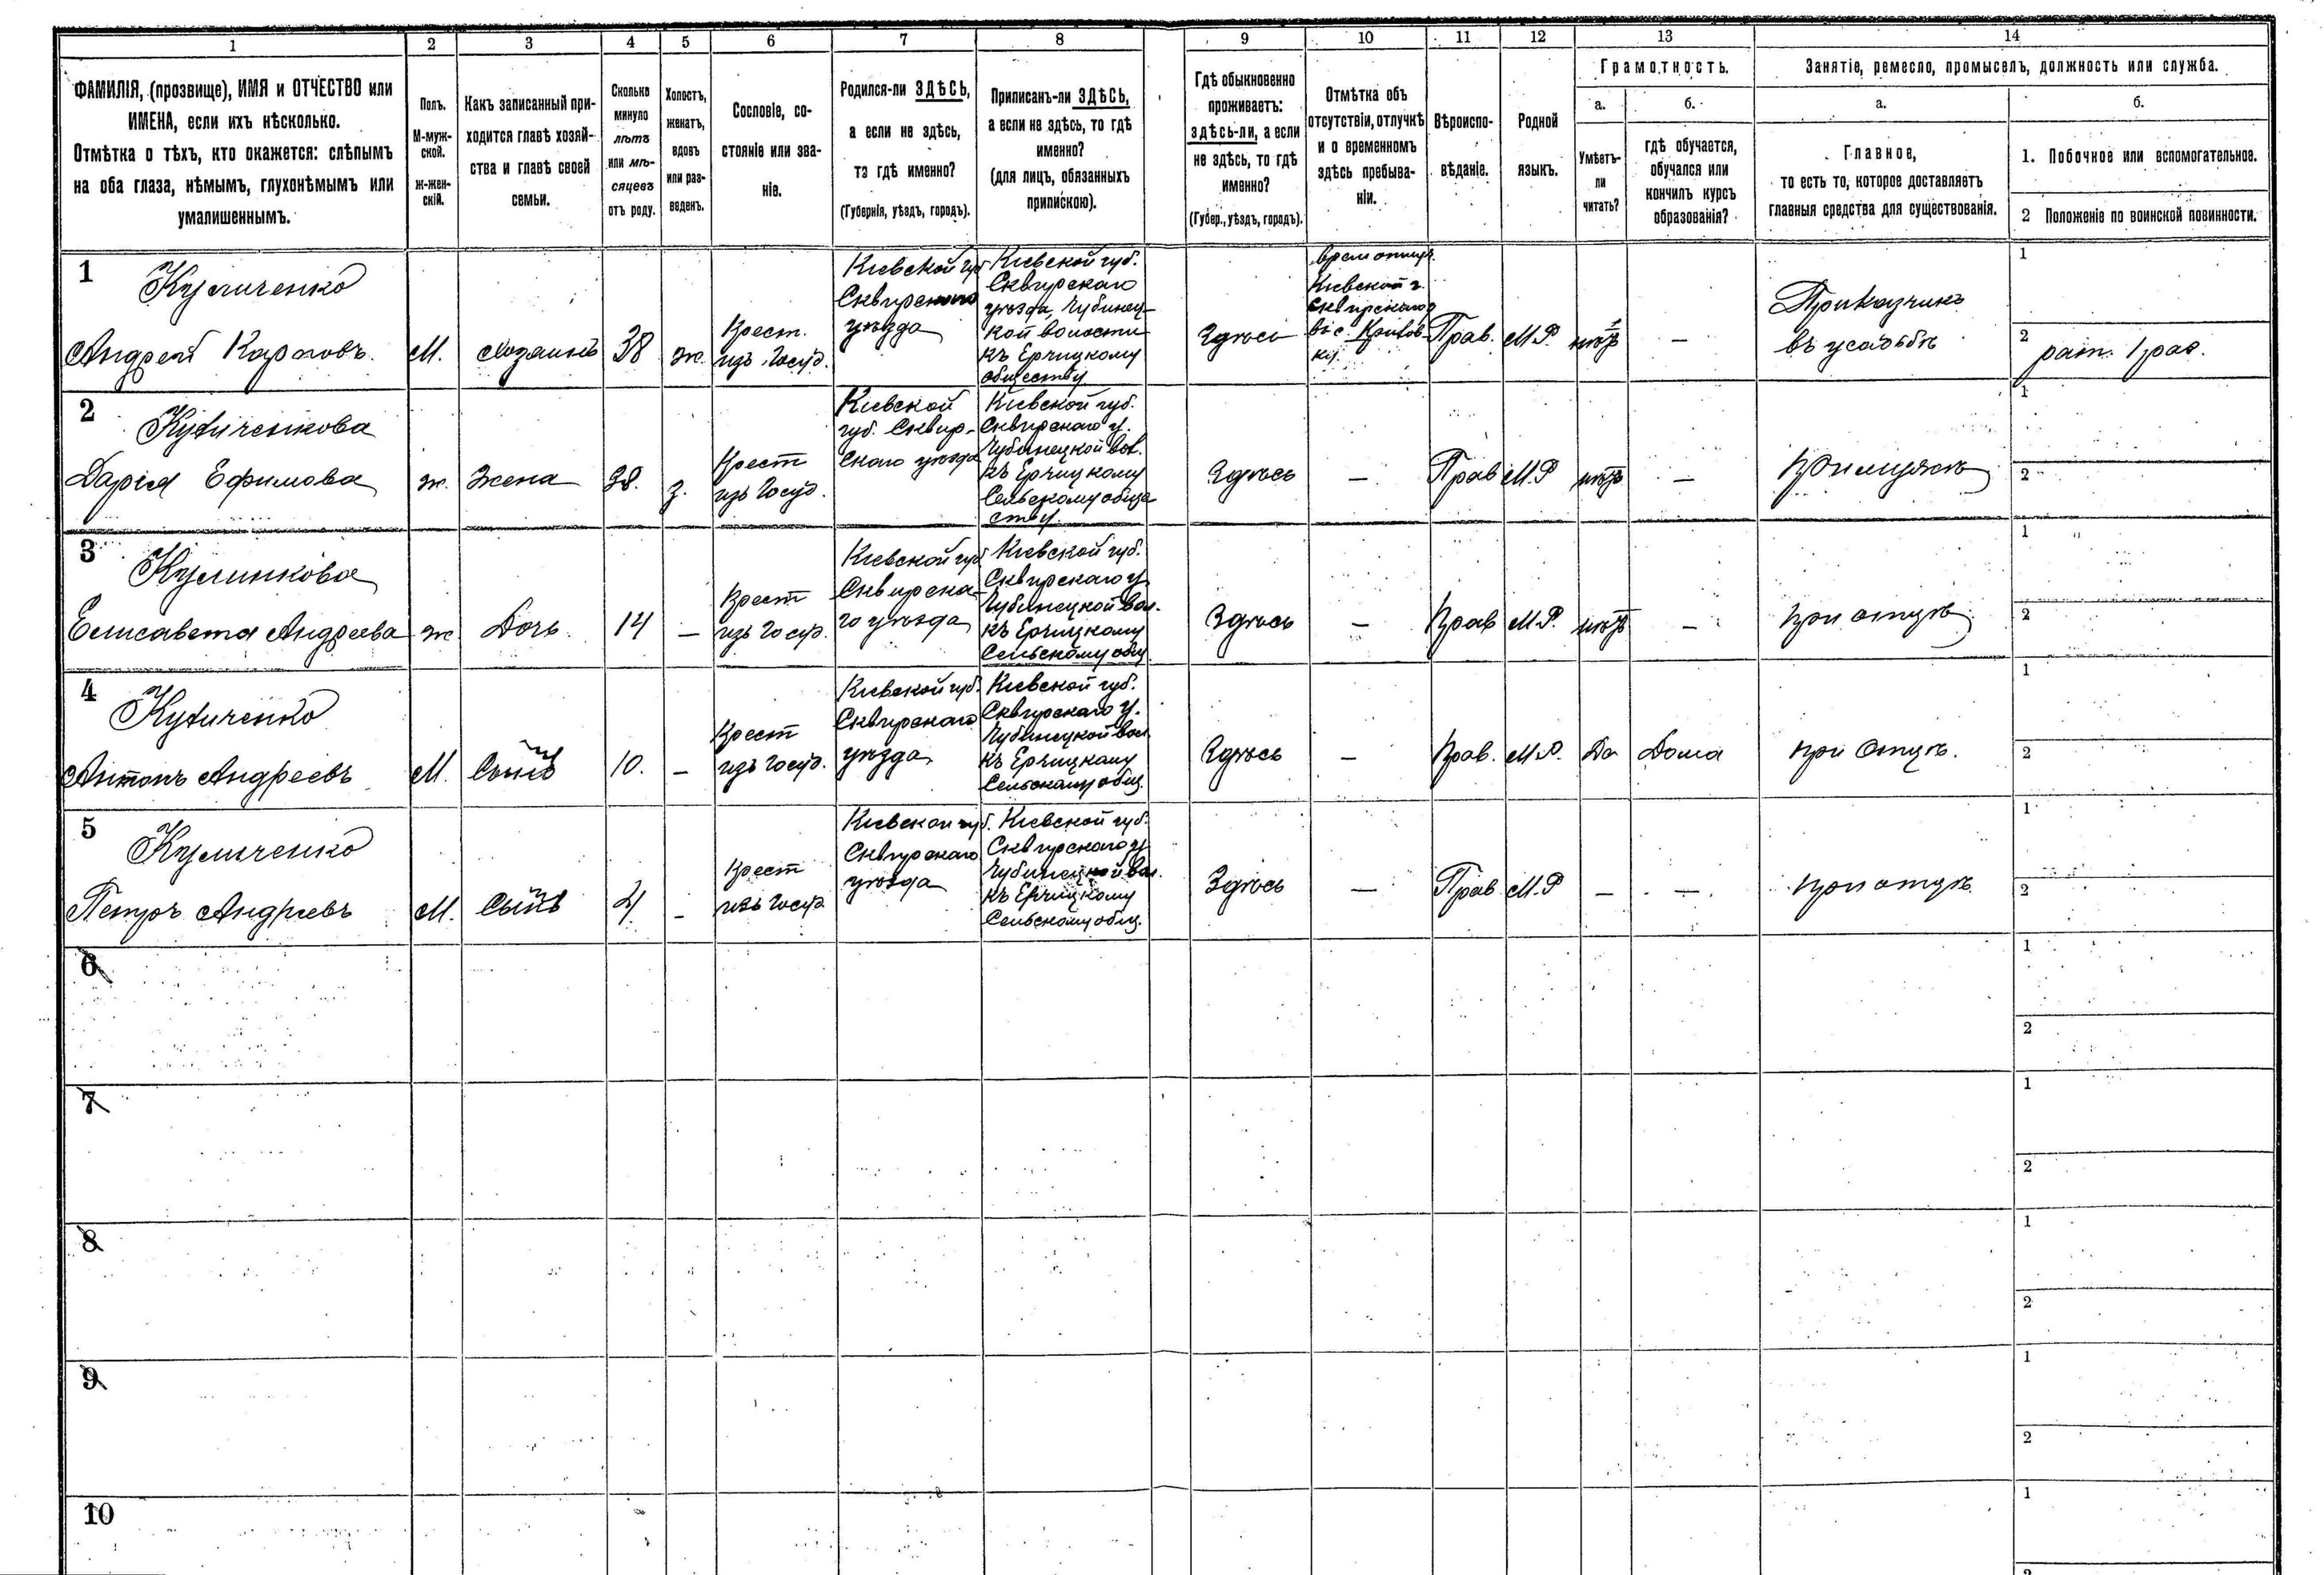 1 2 3 4 5 6 7 8 9 10 11 12 13 14
ФАМИЛІЯ, (прозвище), ИМЯ и ОТЧЕСТВО или
ИМЕНА, если ихъ нѣсколько.
Отмѣтка о тѣхъ, кто окажется: слѣпымъ
на оба глаза, нѣмымъ, глухонѣмымъ или
умалишеннымъ.
Полъ.
М-муж-
ской.
Ж-жен-
скій.
Какъ записанный при-
ходится главѣ хозяй-
ства и главѣ своей
семьи.
Сколько
минуло
лѣтъ
или мѣ-
сяцевъ
отъ роду.
Холостъ,
женатъ,
вдовъ
или раз-
веденъ.
Сословіе, со-
стояніе или зва-
ніе.
Родился-ли ЗДѢСЬ,
а если не здѣсь,
то гдѣ именно?
(Губернія, уѣздъ, городъ).
Приписанъ-ли ЗДѢСЬ,
а если не здѣсь, то гдѣ
именно?
(для лицъ, обязанныхъ
припискою).
Гдѣ обыкновенно
проживаетъ:
здѣсь-ли, а если
не здѣсь, то гдѣ
именно?
(Губер., уѣздъ, городъ).
Отмѣтка объ
отсутствіи, отлучкѣ
и о временномъ
здѣсь пребыва-
ніи.
Вѣроиспо-
вѣданіе.
Родной
языкъ.
Грамотность.
а.
Умѣетъ-
ли
читать?
б.
гдѣ обучается,
обучался или
кончилъ курсъ
образованія?
Занятіе, ремесло, промыселъ, должность или служба.
а.
Главное,
то есть то, которое доставляетъ
главныя средства для существованія.
б.
1. Побочное или вспомогательное.
2 Положеніе по воинской повинности.
1
Андрей Карповъ.
М.
хозяинъ
38
ж.
Крест.
изъ госуд.
Кіевской губ
Сквирского
уѣзда
Кіевской губ.
Сквирскаго
уѣзда, Чубинец-
кой волости
къ Ерчицкому
обществу
Здѣсь
Кіевской г.
Сквирскаго
Прав.
М.Р.
нѣтъ
—
Приказчикъ
въ усадьбѣ
1
2
рат. 1 раз.
2
Дарія Ефимова
ж.
Жена
38.
з.
Крест
изъ госуд.
Кіевской
губ. Сквир-
скаго уѣзда
Кіевской губ.
Сквирскаго у.
Чубинецкой вол.
къ Ерчицкому
Сельскому обще
ству.
Здѣсь
—
Прав
М.Р
нѣтъ
—
При мужѣ
1
2
3
Елисавета Андреева
ж
Дочь.
14
—
Крест
изъ госуд.
Кіевской губ
Сквирска-
го уѣзда
Кіевской губ.
Сквирскаго у
Чубинецкой вол.
къ Ерчицкому
Сельскому общ
Здѣсь
—
Прав
М.Р.
нѣтъ
—
при отцѣ
1
2
4
Кудиченко
Антонъ Андреевъ
М.
Сынъ
10.
—
Крест
изъ госуд.
Кіевской губ.
Сквирскаго
уѣзда
Кіевской губ.
Сквирскаго у.
Чубинецкой вол
къ Ерчицкому
Сельскому общ.
Здѣсь
—
Прав.
М.Р.
Да
Дома
при Отцѣ.
1
2
5
Петръ Андреевъ
М.
Сынъ
4
-
Крест
изъ госуд
Кіевской губ.
Сквирскаго
уѣзда
Кіевской губ.
Сквирскаго у
Чубинецкой вол.
къ Ерчицкому
Сельскому общ.
Здѣсь
—
Прав
М.Р
—
—
при отцѣ
1
2
6
1
2
7
1
2
8
1
2
9
1
2
10
1